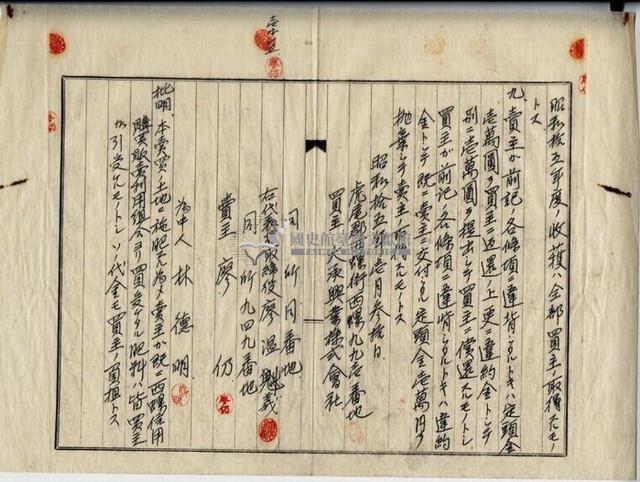 昭和拾五年度ノ收穫ハ全部買主ノ取得スルモノ
トス
九、賣主カ前記ノ各條項ニ違背シタルトキハ定頭金
壱萬圓ヲ買主ニ返還ノ上更ニ違約金トシテ
別ニ壱萬圓ヲ提出シテ買主ニ償還スルモノトシ
買主カ前記ノ各條項ニ違背シタルトキハ違約
金トシテ既ニ賣主ニ交付シタル定頭金壱萬円ヲ
抛棄シテ賣主ノ所得スルモノトス
昭和拾五年壱月参拾日
虎尾郡西螺街西螺九九壱番地
買主 大承興業株式會社
同所同番地
右代表取締役 廖溫魁義
同所九四九番地
賣主 廖 仍
為中人 林 德 明
批明、本賣買土地ニ施肥ノ為メ賣主カ既ニ西螺信用
購買販賣利用組合ヨリ買受ケタル肥料ハ皆買主
カ引受ケルモノトシ ソノ代金モ買主ノ負担トス
國史館臺灣文獻館